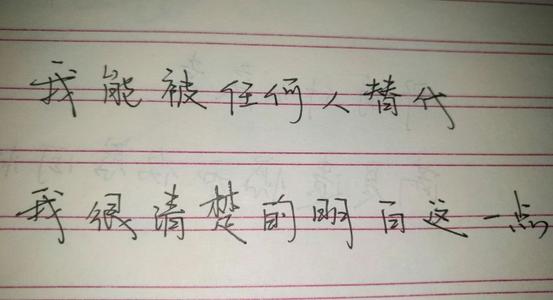 我能被任何人替代
我很清楚的明白这一点